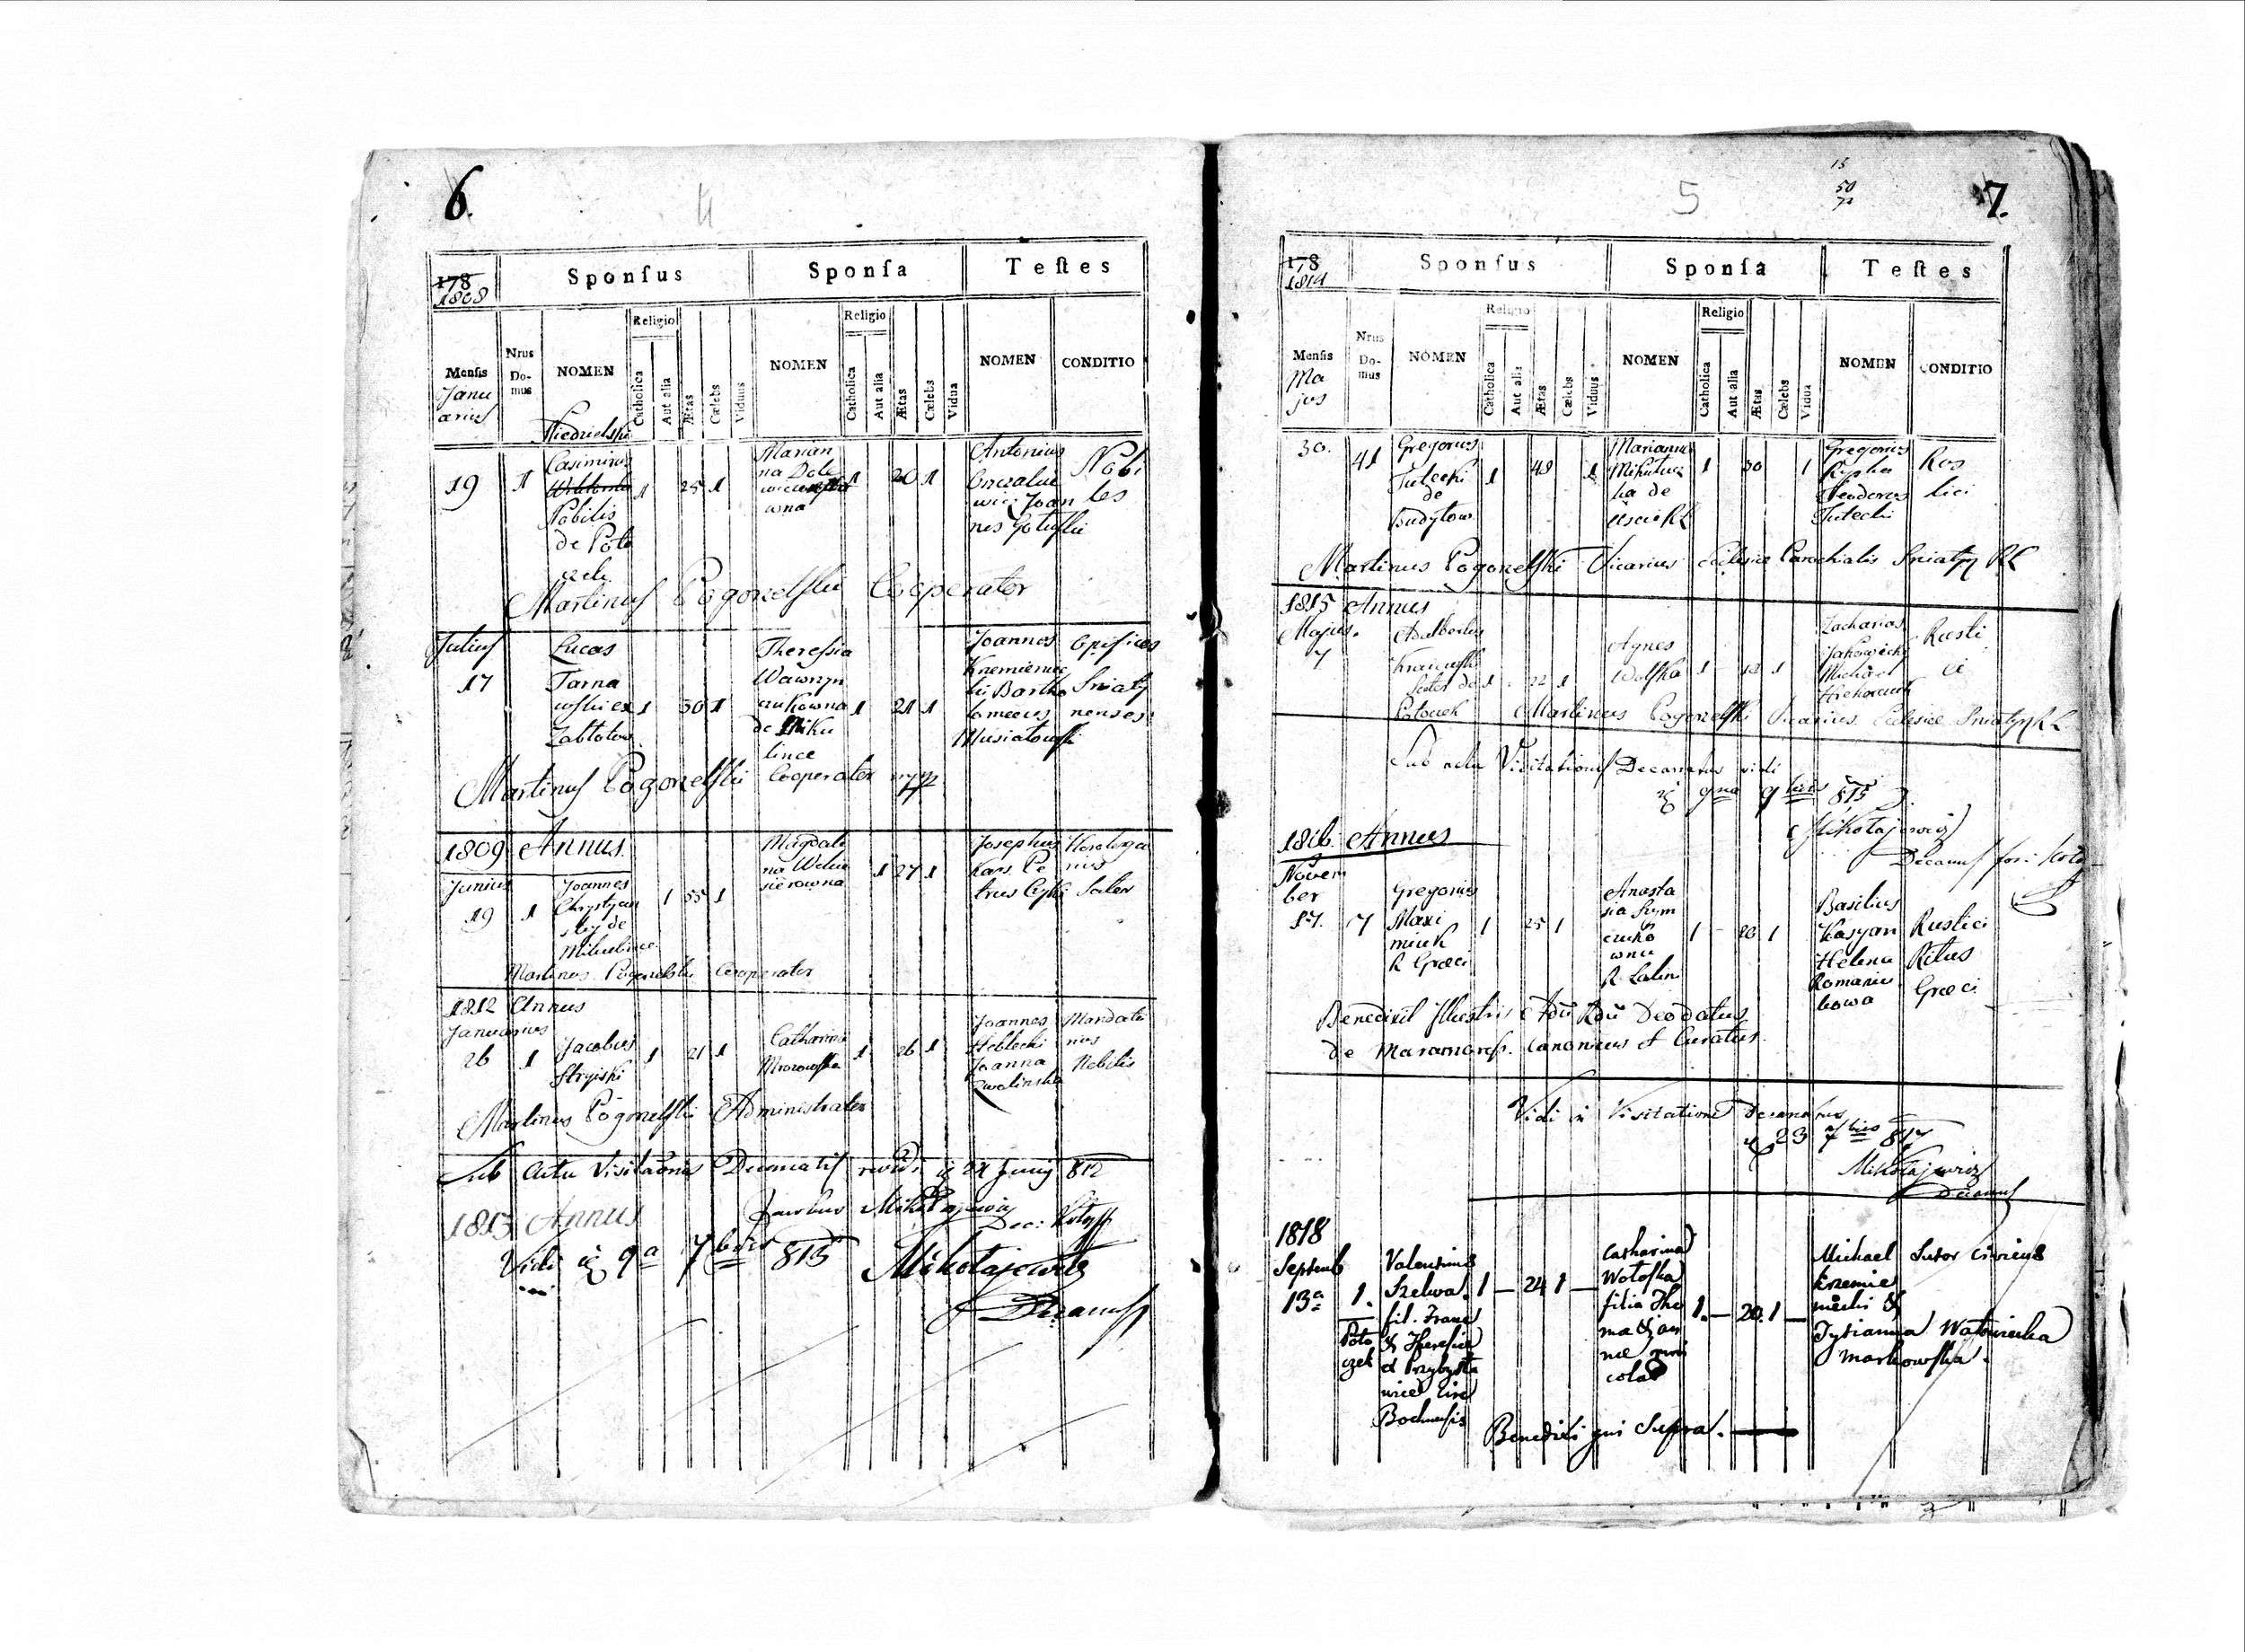 6.
4
178
1808
Sponſus
Sponſa
Teſtes
Menſis
Janu
arius
Nrus
Do-
mus
NOMEN
Religio
Catholica
Aut alia
Ætas
Cælebs
Viduus
NOMEN
Religio
Catholica
Aut alia
Ætas
Cælebs
Vidua
NOMEN
CONDITIO
19
1
Niedzielski
Casimirus
Nobilis
de Poto
czek
1
25
1
Marian
na Dole
wiczo
wna
1
20
1
Antonius
wicz Joan
nes
Nobi
les
Martinus Pogorzelski Cooperator
Julius
17
Lucas
Tarna
wski ex
Zabłotow
1
30
1
Theressia
Wawrzyn
czukowna
de Miku
lince
1
21
1
Joannes
Krzemienic
ki Bartho
lomeus
Musiatowski
Opifices
Sniaty
nenses
Martinus Pogorzelski Cooperator mpp
1809 Annus
Junius
19
1
Joannes
Chrystyan
skij de
Mikulince
1
55
1
Magdale
na
sierowna
1
27
1
Josephus
Kars Pe
trus
rius
Sutor
Martinus Pogorzelski Cooperator
1812 Annus
Januarius
26
1
Jacobus
Stryiski
1
21
1
Catharina
Mrozowska
1
26
1
Joannes
Joanna
Zwolinska
Mandata
rius
Nobilis
Martinus Pogorzelski Administrator
Sub Actu Visitaonis Decanalis 24 Junij 812
Jacobus Mikołajewicz
Dec:
1813 Annus
Vidi 9a 7bris 815 Mikołajewicz
Decanus
15
50
5
7.
178
1814
Sponſus
Sponſa
Teſtes
Menſis
Ma
jus
Nrus
Do-
mus
NOMEN
Religio
Catholica
Aut alia
Ætas
Cælebs
Viduus
NOMEN
Religio
Catholica
Aut alia
Ætas
Cælebs
Vidua
NOMEN
CONDITIO
30.
41
Gregorius
Tutecki
de
Budyłow
1
48
1
Marianna
Mikulic
ka de
Uscie RL
1
30
1
Gregorius
Theodorus
Tutecki
Rus
tici
Martinus Pogorzelski Vicarius Eclesiæ Parochialis Sniatyn RL
1815 Annus
Majus.
7
Adalbertus
Krajewski
Sutor de
Potoczek
1
22
1
Agnes
Wolska
1
18
1
Zacharias
Michael
Rusti
ci
Martinus Pogorzelski Vicarius Eclesiæ Sniatyn RL
Sub actu Visitationis Decanatus vidi
9na 9bris 815
Mikołajewicz
Decanus
1816. Annus
Novem
ber
17.
7
Gregorius
Maxi
miuk
R Græci
1
25
1
Anasta
sia Szym
czuko
wna
R. Latini
1
20
1
Basilius
Kasyan
Helena
Romaniu
kowa
Rustici
Ritus
Græci
Benedixit Illustris Adm Rdus Deodatus
de Maramoross. Canonicus et Curatus.
Vidi in Visitatione Decanatus
23 7bris 817
Mikołajewicz
Decanus
1818
Septemb
13a
1.
Poto
czek
Valentinus
Szelwa.
fil. Franc
& Theresiæ
e Przybysła
wice Circ
Bochnensis
1 — 24 1 —
Catharina
Wołoska
filia Tho
ma &
næ agri
colar
1. — 20. 1 —
Michael
Krzemie
niecki &
Tysianna
Markowska.
Sutor Civicus
Benedixi qui Supra. —